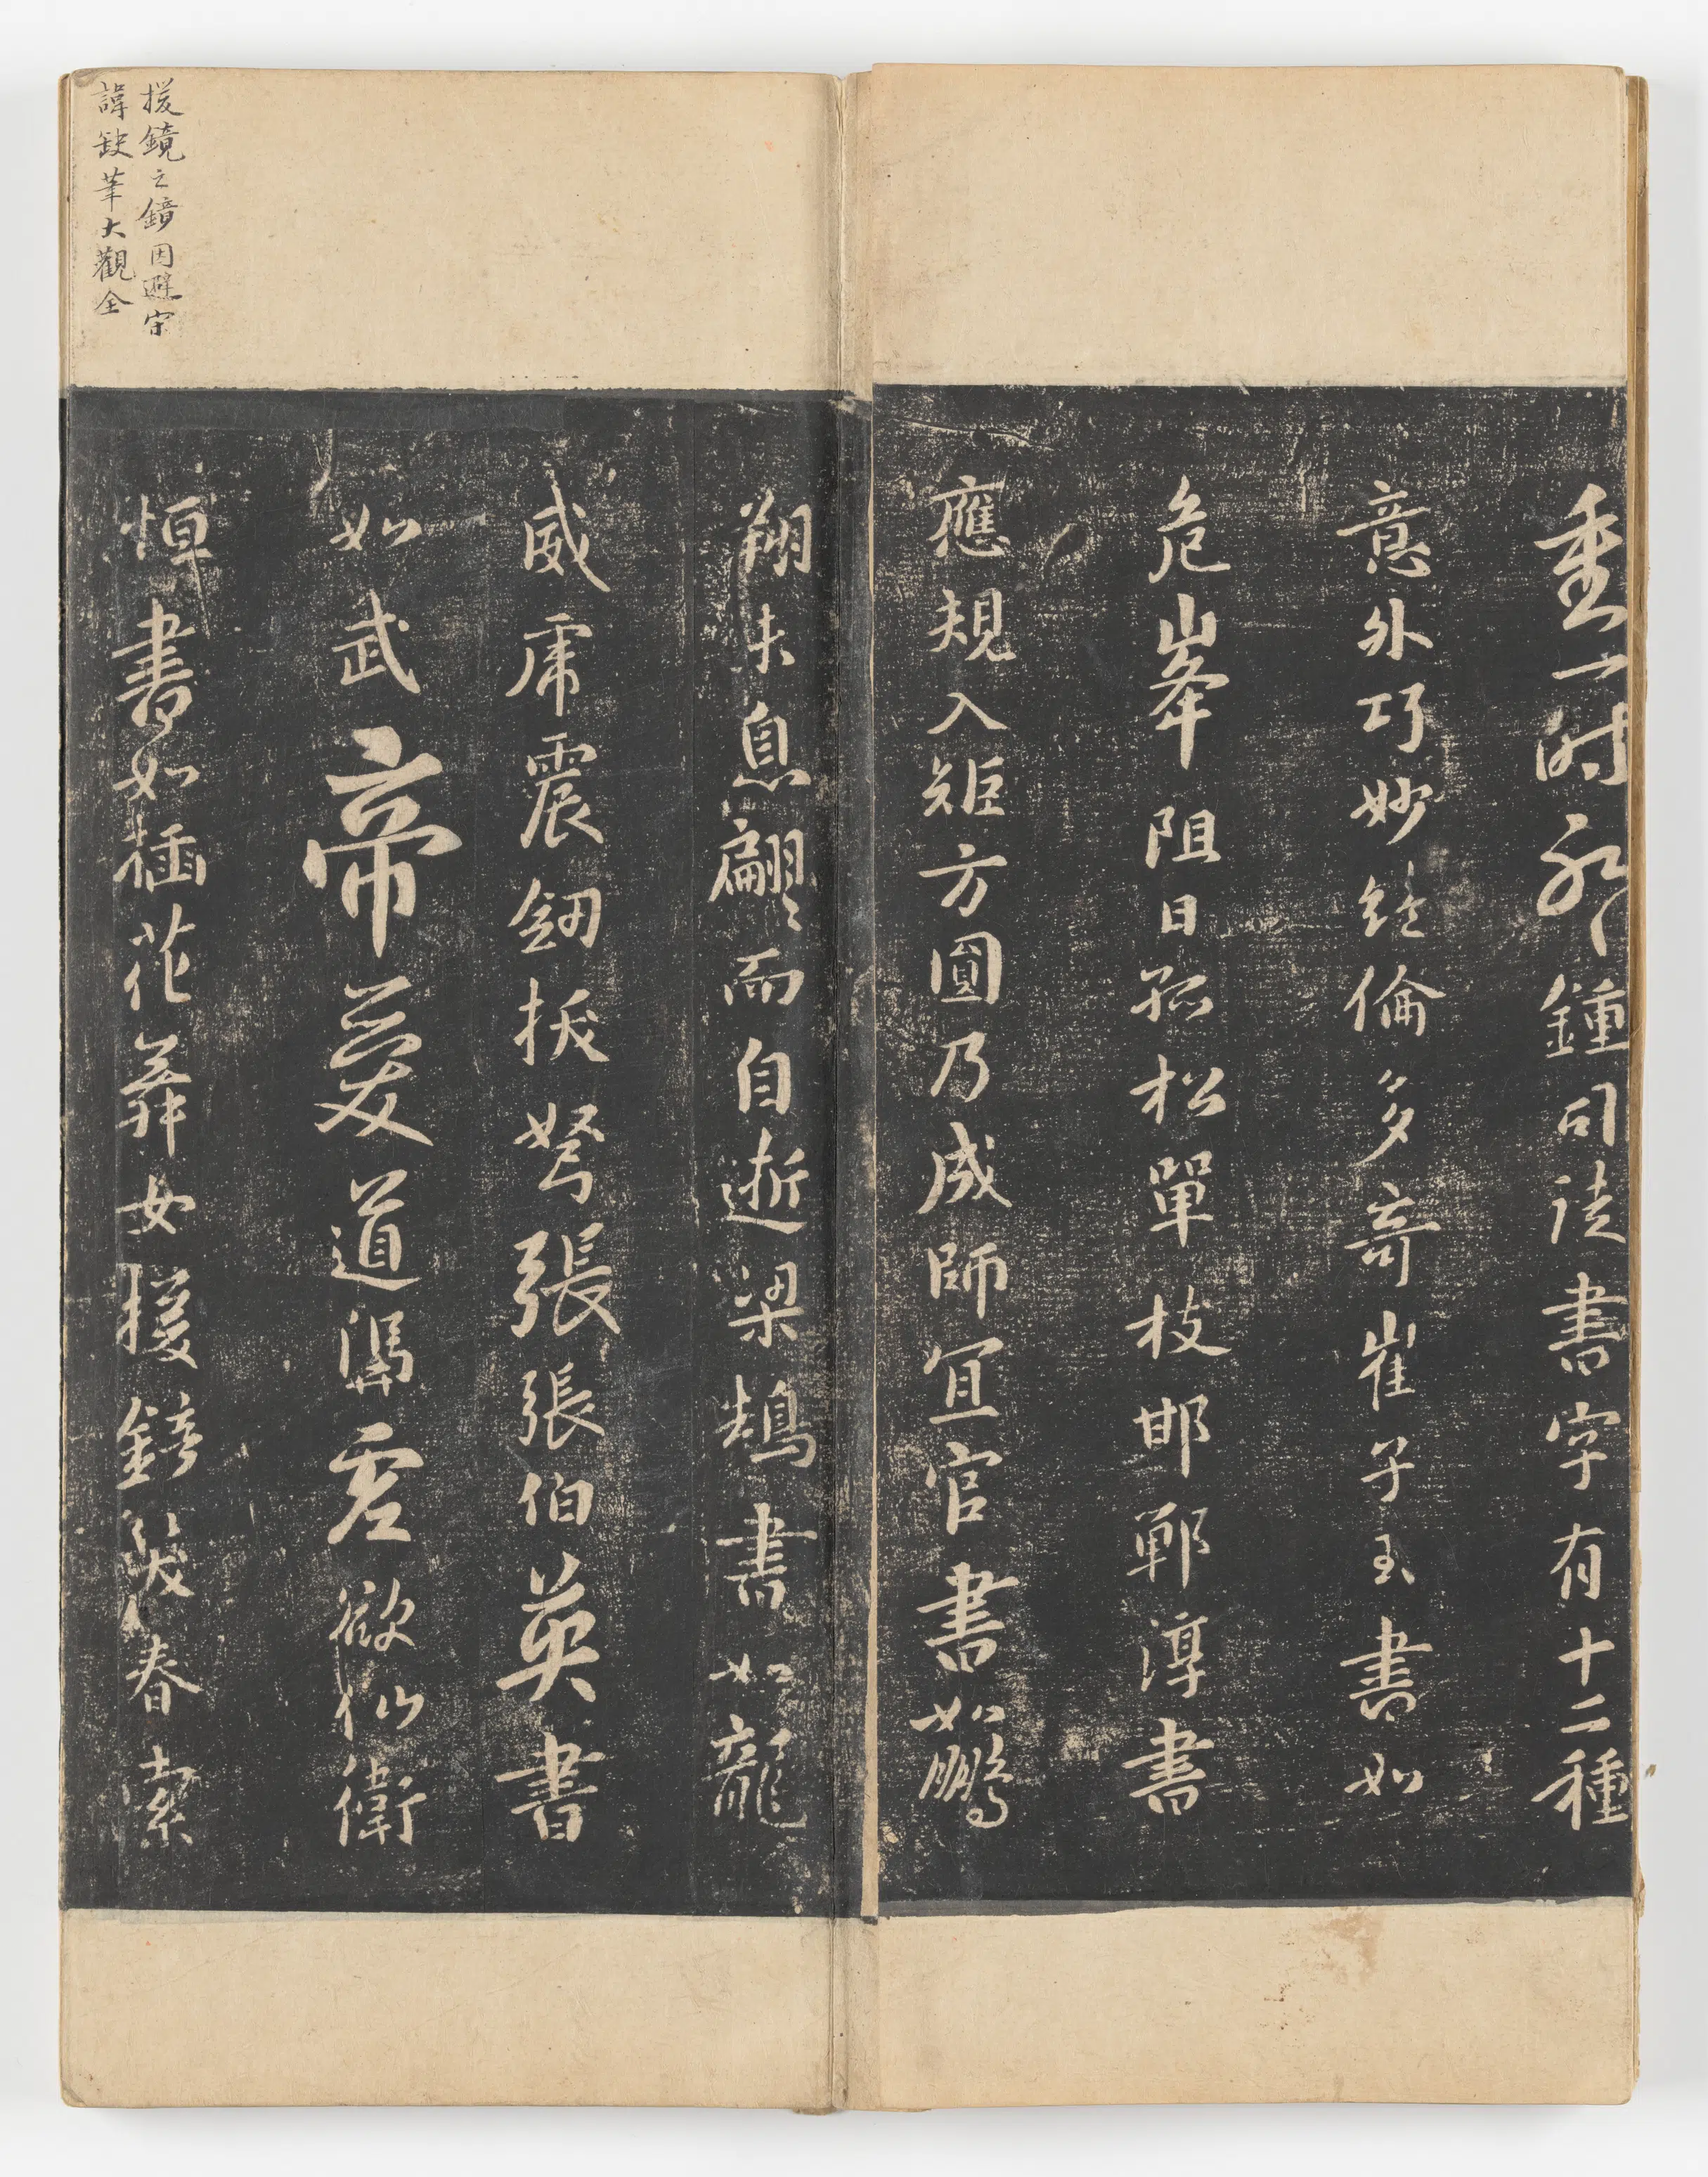 重一時耶鍾司徒書字有十二種
意外巧妙絕倫多奇崔子玉書如
危峯阻日孤松單枝邯鄲淳書
應規入矩方圓乃成師宜官書如鵬
翔未息翩〻而自逝梁鵠書如龍
威虎震劒拔弩張張伯英書
如武帝愛道馮虛欲仙衛
恒書如插花舞女援鏡笑春索
援鏡之鏡因避宋
諱缺筆大觀全